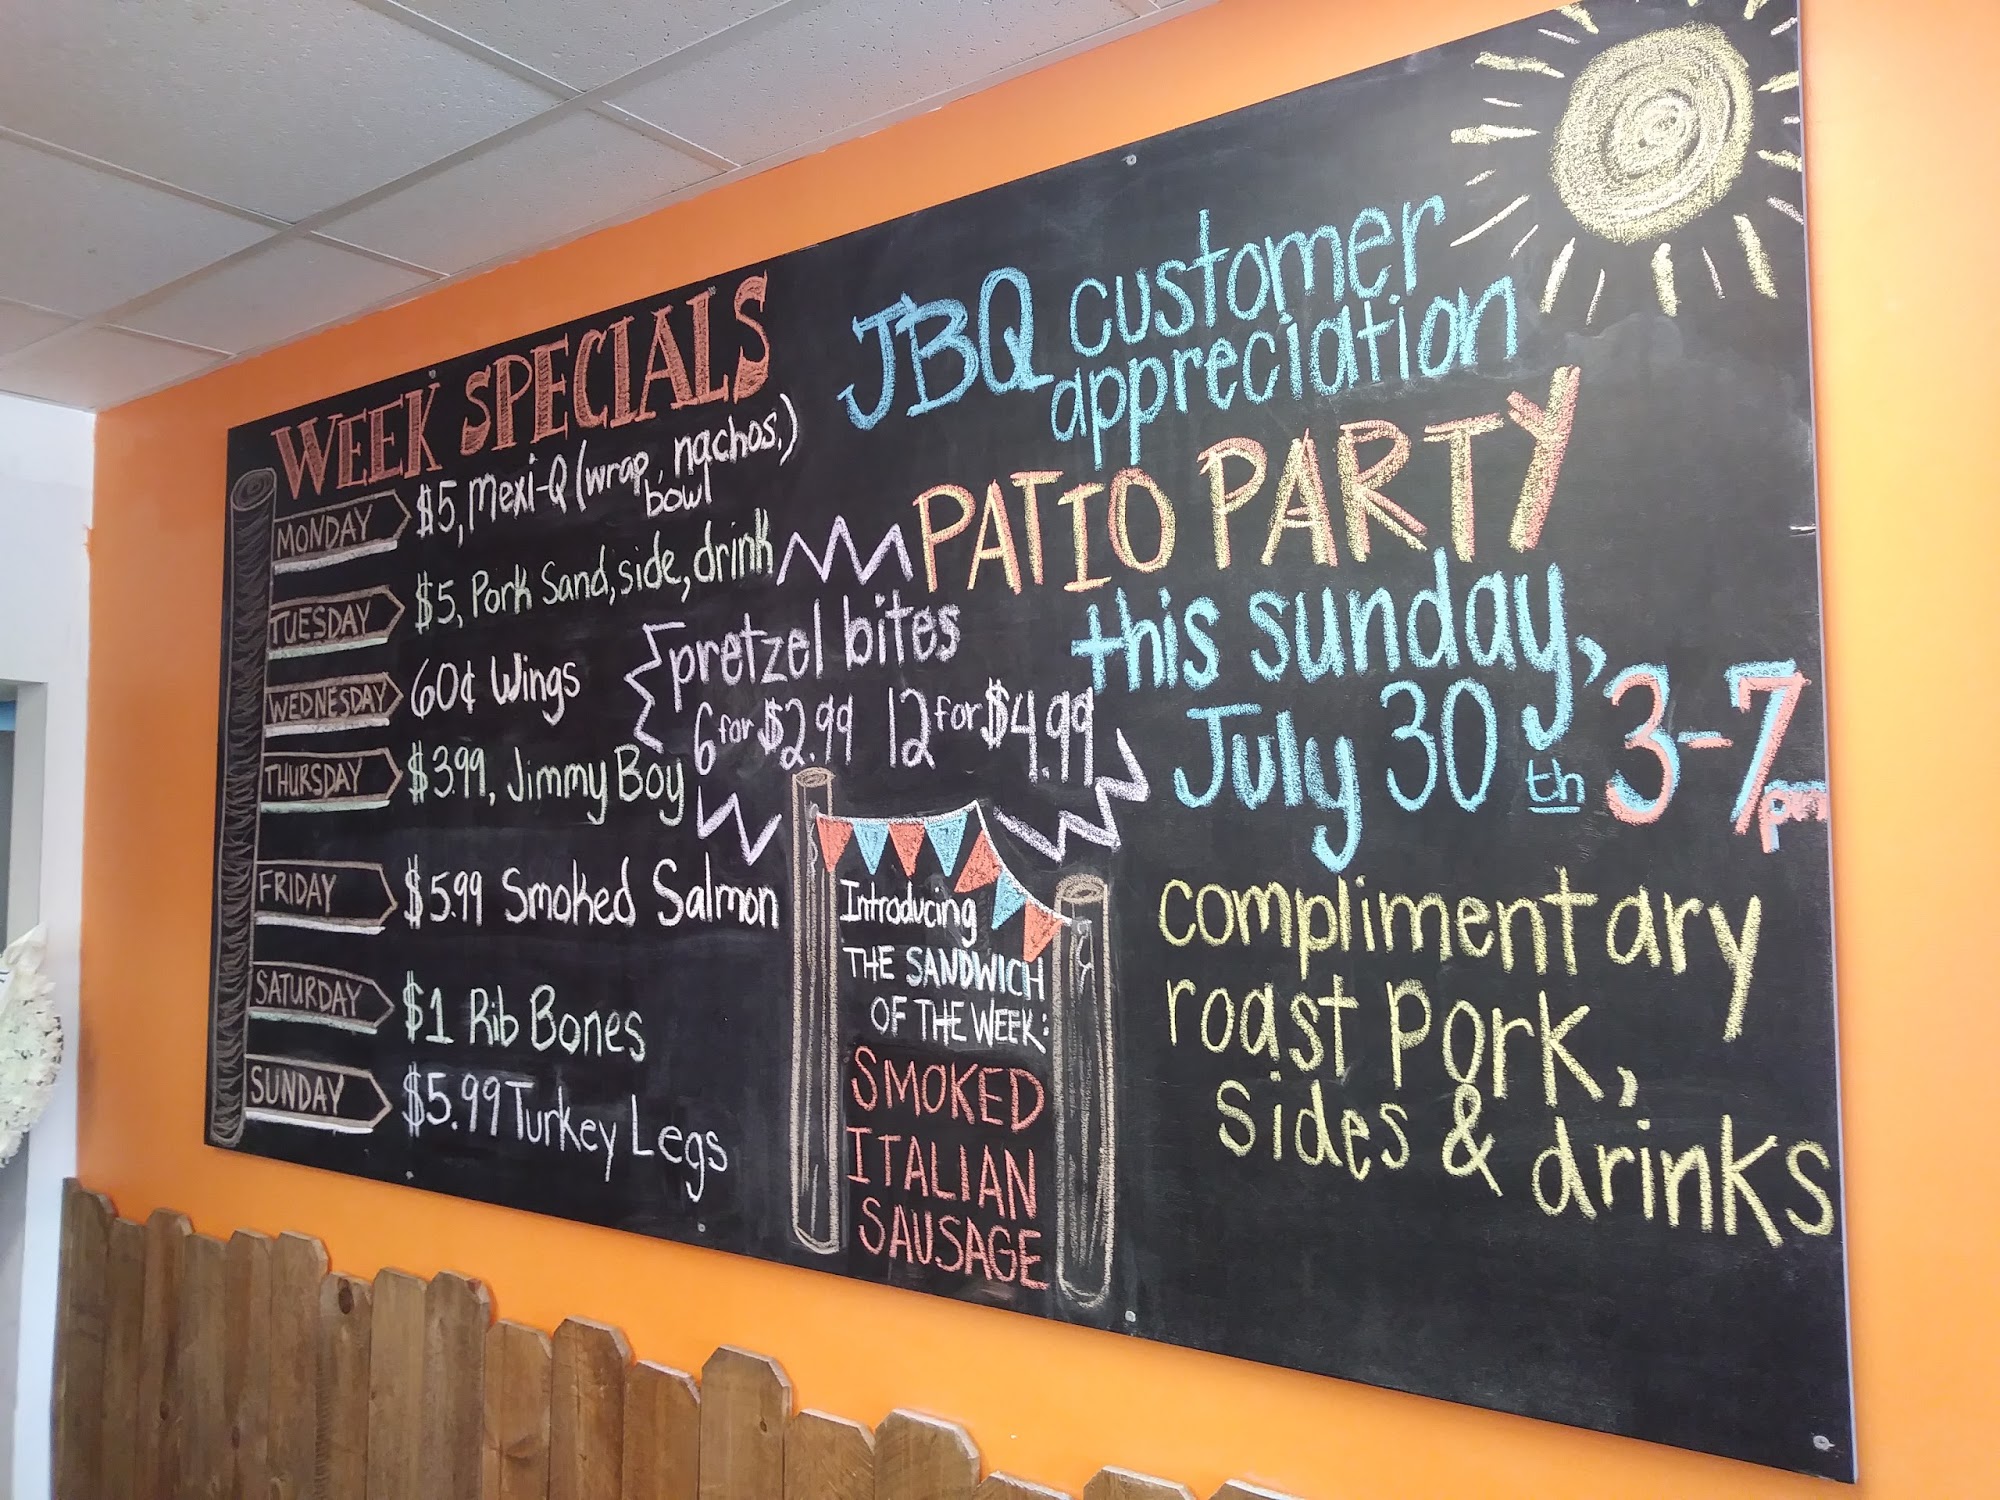 WEEK SPECIALS
MONDAY $5, Mexi-Q (wrap, nachos,)
bowl
TUESDAY $5, Pork Sand, side, drink
WEDNESDAY 60¢ Wings
THURSDAY $3.99, Jimmy Boy
FRIDAY $5.99 Smoked Salmon
SATURDAY $1 Rib Bones
SUNDAY $5.99 Turkey Legs
pretzel bites
6 for $2.99 12 for $4.99
Introducing
THE SANDWICH
OF THE WEEK:
SMOKED
ITALIAN
SAUSAGE
JBQ customer
appreciation
PATIO PARTY
this sunday,
July 30th 3-7pm
complimentary
roast pork,
sides & drinks